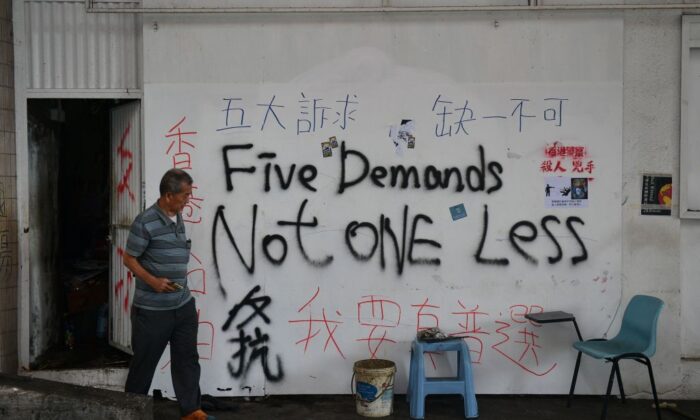 五大訴求 缺一不可
Five Demands
Not ONE Less
香港警察
殺人 兇手
反抗
我要真普選